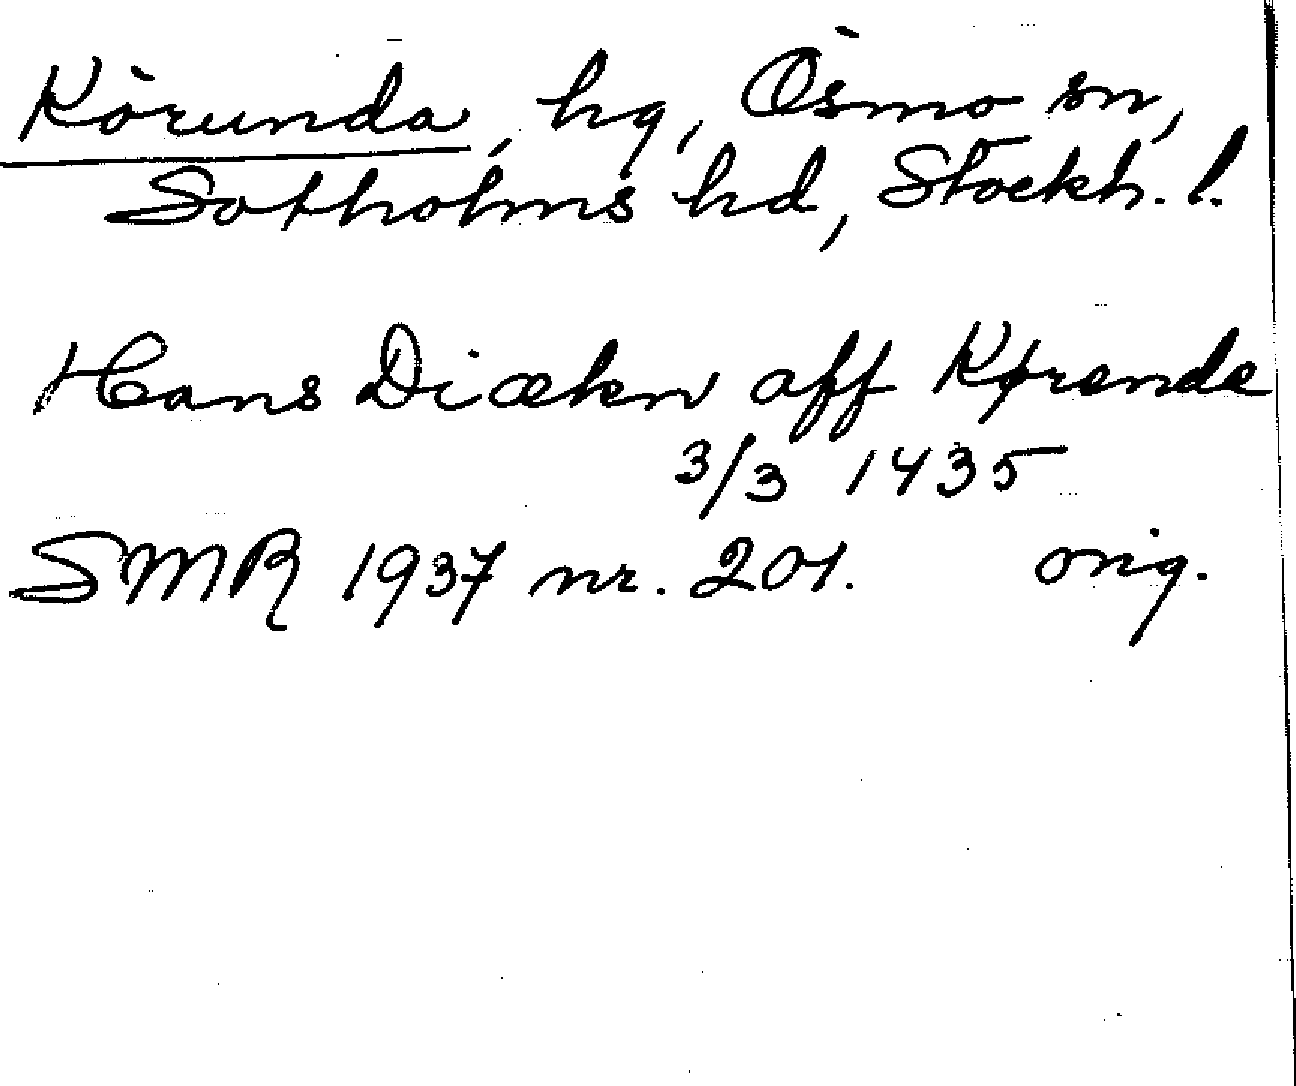 Körunda, hg, Ösmo sn,
Sotholms hd, Stockh. l.
Hans Diækn aff Kørende
3/3 1435
SMR 1937 nr. 201. orig.